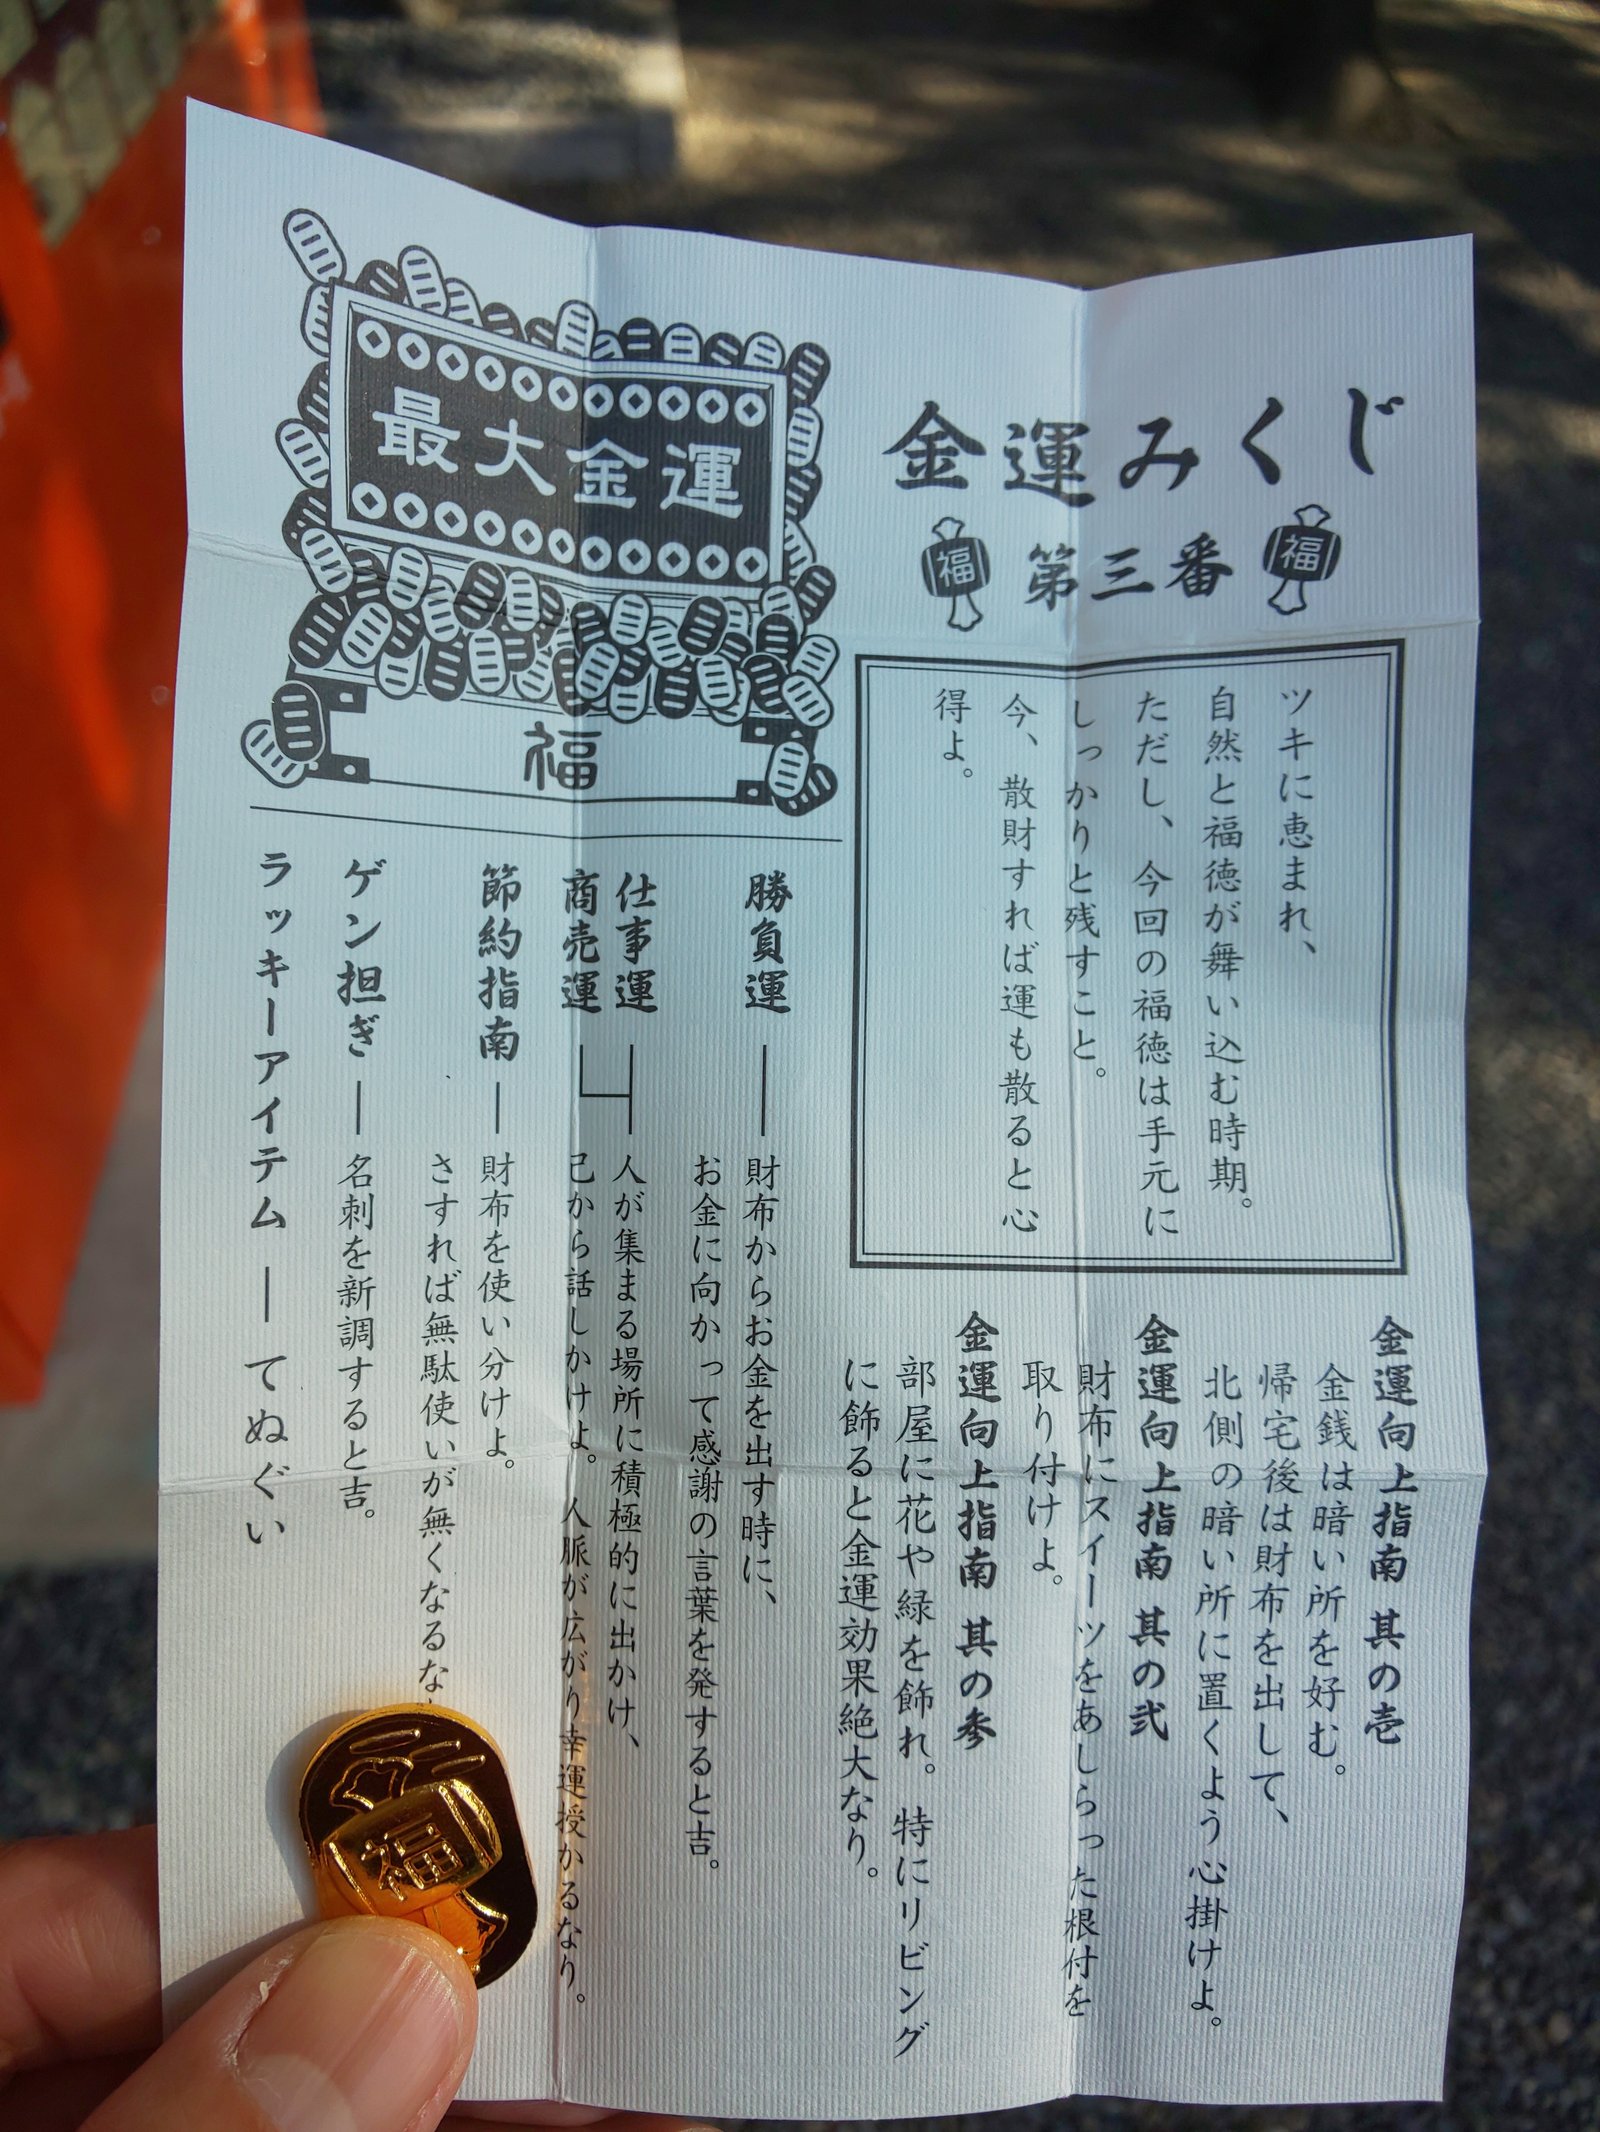 金運みくじ
福 第三番 福
ツキに恵まれ、
自然と福徳が舞い込む時期。
ただし、今回の福徳は手元に
しっかりと残すこと。
今、散財すれば運も散ると心
得よ。
金運向上指南 其の壱
金銭は暗い所を好む。
帰宅後は財布を出して、
北側の暗い所に置くよう心掛けよ。
金運向上指南 其の弐
財布にスイーツをあしらった根付を
取り付けよ。
金運向上指南 其の参
部屋に花や緑を飾れ。特にリビング
に飾ると金運効果絶大なり。
最大金運
福
勝負運
財布からお金を出す時に、
お金に向かって感謝の言葉を発すると吉。
仕事運
商売運
人が集まる場所に積極的に出かけ、
己から話しかけよ。人脈が広がり幸運授かるなり。
節約指南
財布を使い分けよ。
さすれば無駄使いが無くなるな
ゲン担ぎ
名刺を新調すると吉。
ラッキーアイテム
てぬぐい
福